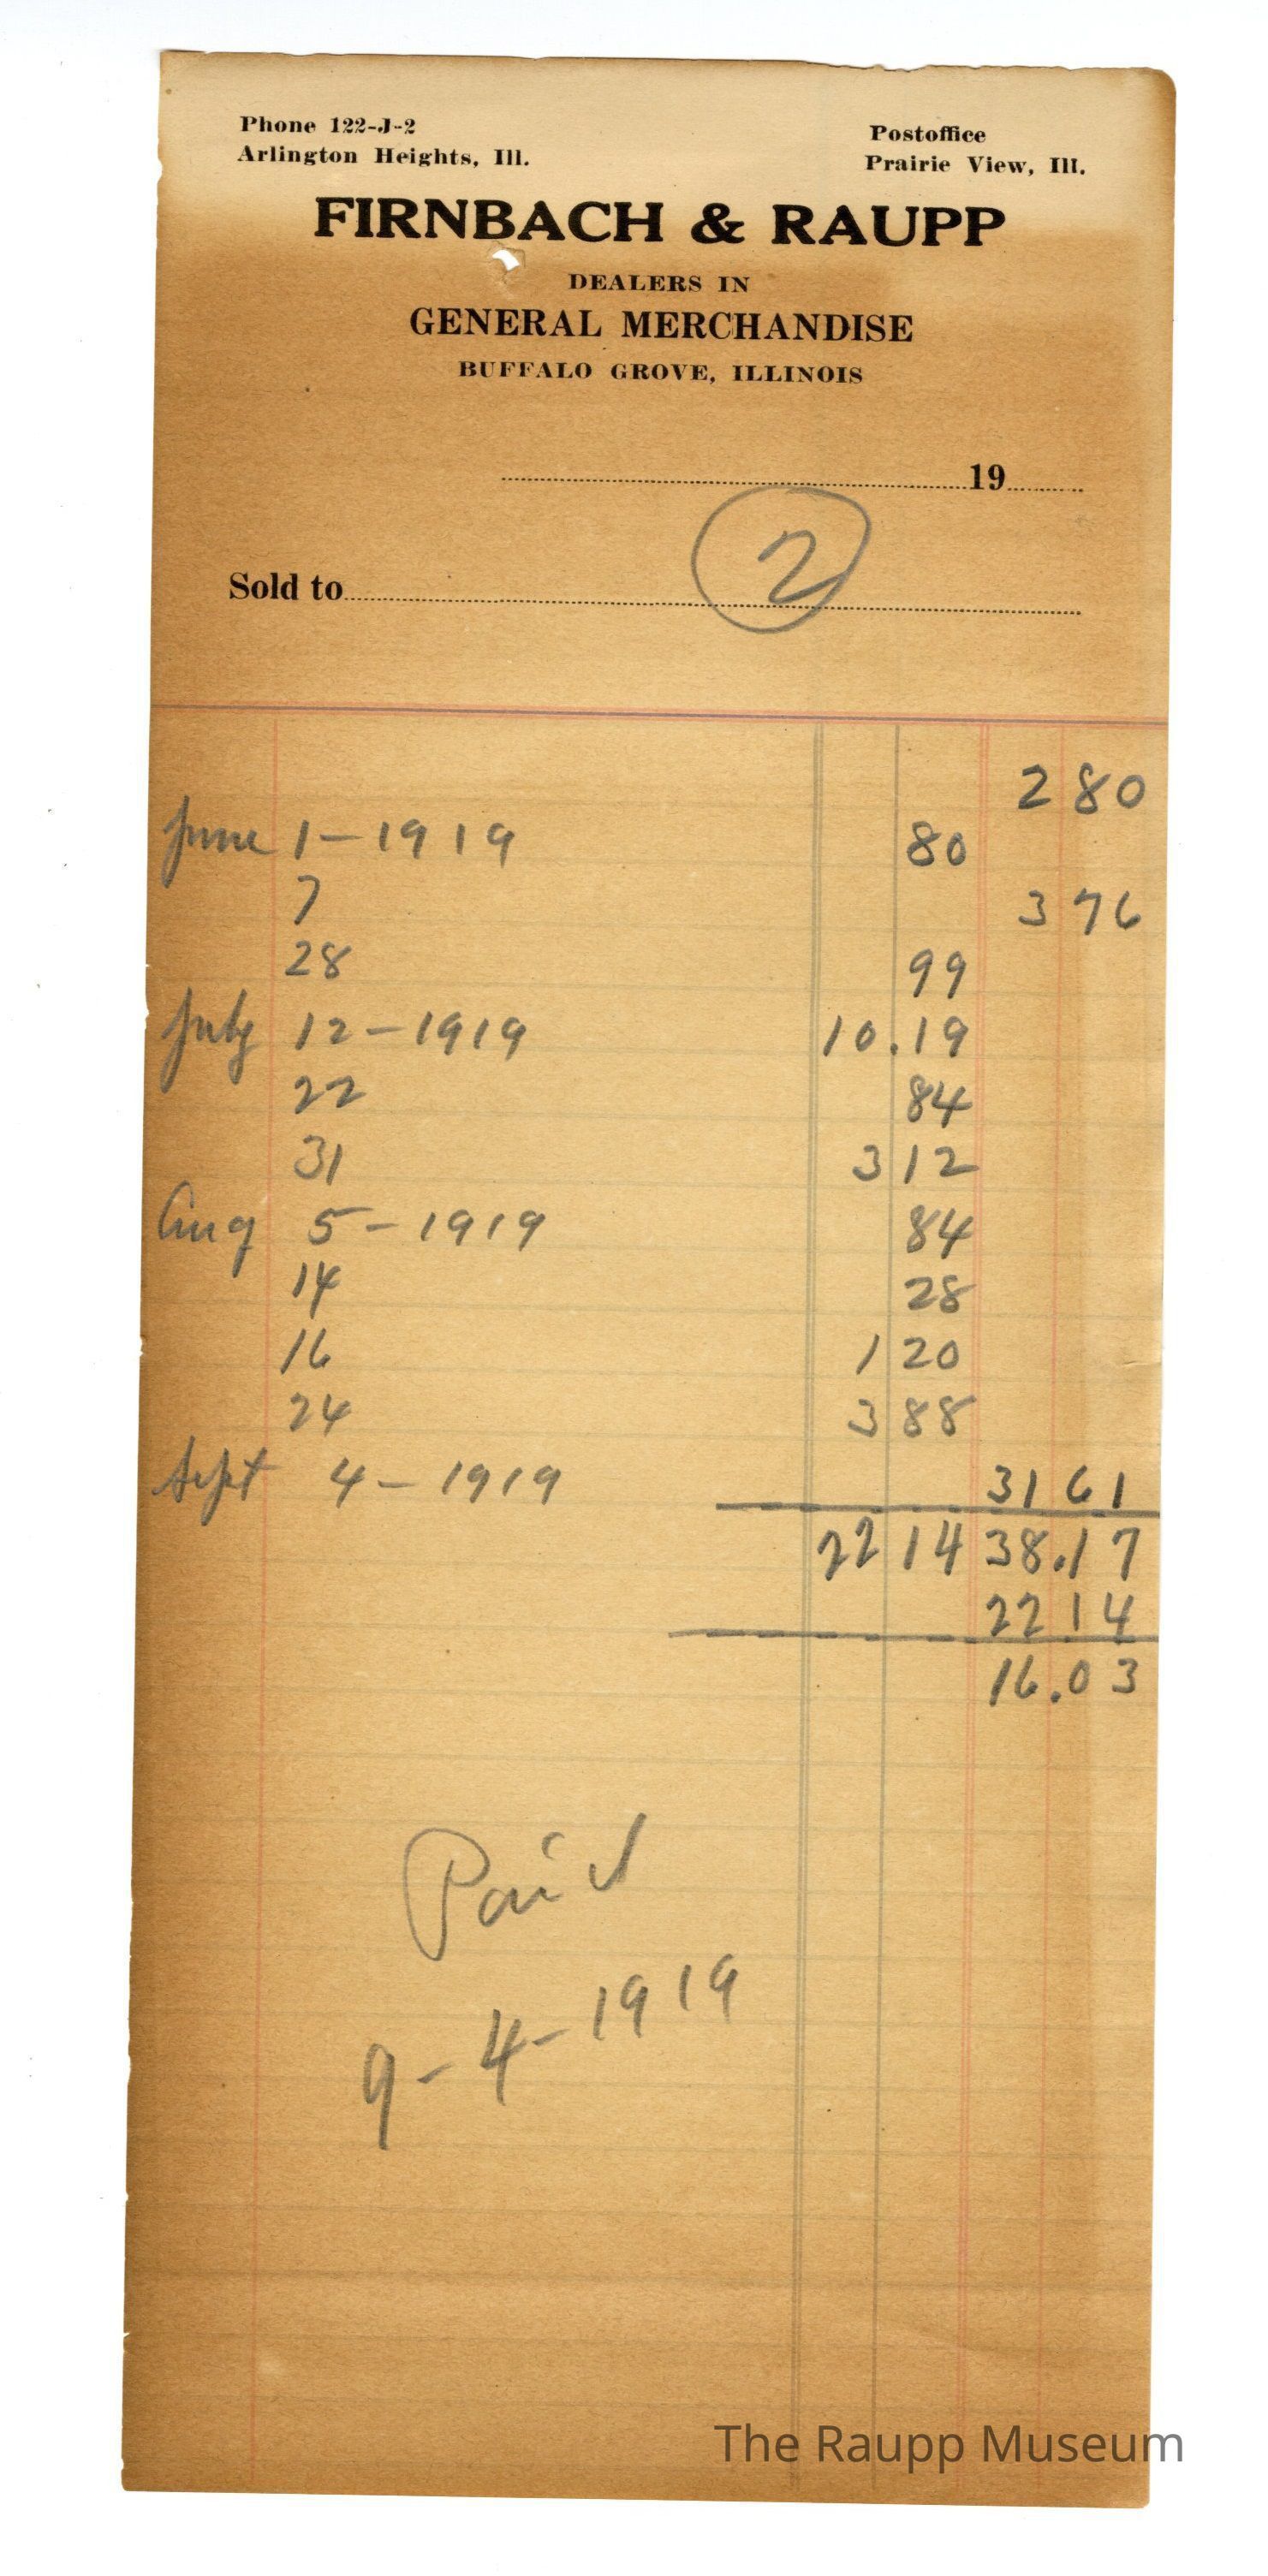 Phone 122-J-2
Arlington Heights, Ill.
Postoffice
Prairie View, Ill.
FIRNBACH & RAUPP
DEALERS IN
GENERAL MERCHANDISE
BUFFALO GROVE, ILLINOIS
19
2
Sold to
2 80
June 1-1919 80
7 3 76
28 99
July 12-1919 10.19
22 84
31 3 12
Aug 5-1919 84
14 28
16 1 20
24 3 88
Sept 4-1919 31 61
22 14 38.17
22 14
16.03
Paid
9-4-1919
The Raupp Museum